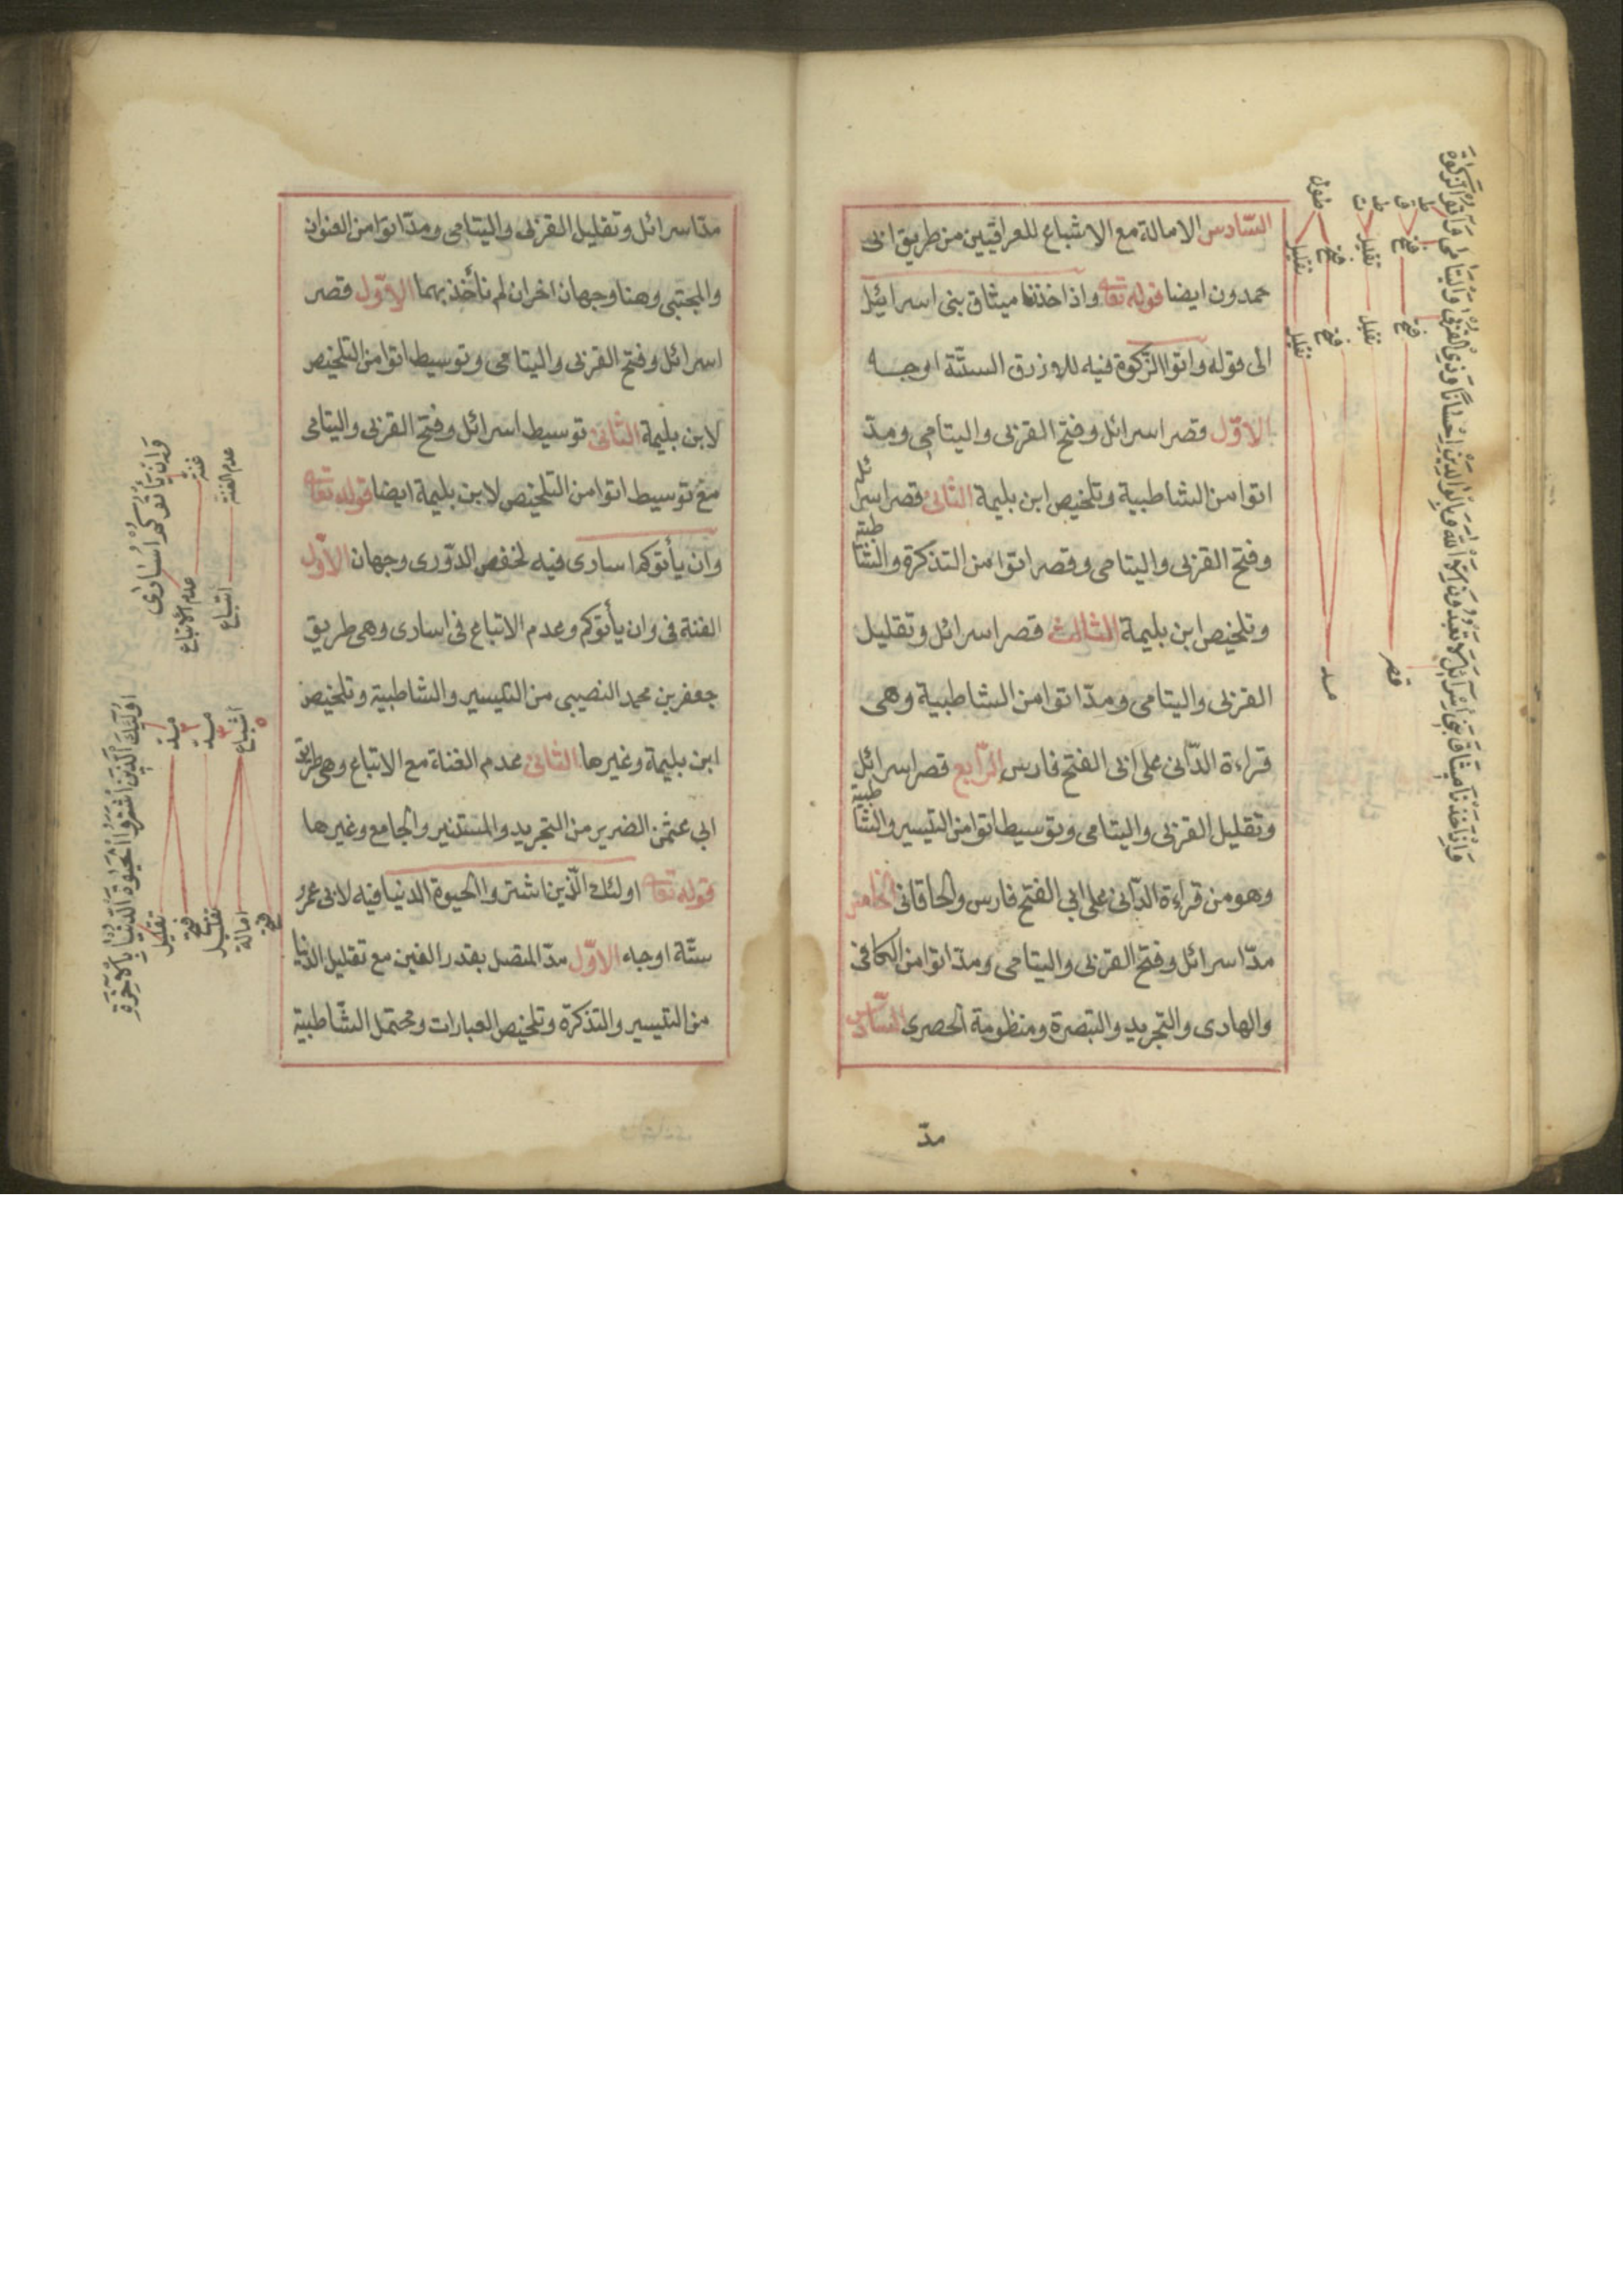 السّادس الامالة مع الاشباع للعراقيين من طريق ابى
حمدون ايضا قوله تعا واذ اخذنا ميثاق بنى اسرائيل
الى قوله واتوا الزّكوة فيه للازرق الستّة اوجه
الاوّل قصر اسرائل وفتح القربى واليتامى ومدّ
اتوا من الشاطبية وتلخيص ابن بليمة الثانى قصر اسرائل
وفتح القربى واليتامى وقصر اتوا من التذكرة والشاطبية
وتلخيص ابن بليمة الثالث قصر اسرائل وتقليل
القربى واليتامى ومدّ اتوا من الشاطبية وهى
قراءة الدّانى على ابى الفتح فارس الرّابع قصر اسرائل
وتقليل القربى واليتامى وتوسيط اتوا من التيسير والشاطبية
وهو من قراءة الدّانى على ابى الفتح فارس والخاقانى الخامس
مدّ اسرائل وفتح القربى واليتامى ومدّ اتوا من الكافى
والهادى والتجريد والتبصرة ومنظومة الحصرى السّادس
مدّ
وَاِذْ اَخَذْنَا مِيثَاقَ بَنِى اِسْرَائِلَ لَا تَعْبُدُونَ اِلَّا اللّٰهَ وَبِالْوَالِدَيْنِ اِحْسَانًا وَذِى الْقُرْبٰى وَالْيَتَامٰى وَاٰتُوا الزَّكٰوةَ
قصر
مد
فتح
تقليل
فتح
تقليل
فتح
تقليل
فتح
تقليل
ط
ق
ط
ت
طول
مدّ اسرائل وتقليل القربى واليتامى ومدّ اتوا من العنوان
والمجتبى وهنا وجهان اخران لم نأخذ بهما الاوّل قصر
اسرائل وفتح القربى واليتامى وتوسيط اتوا من التلخيص
لابن بليمة الثانى توسيط اسرائل وفتح القربى واليتامى
مع توسيط اتوا من التلخيص لابن بليمة ايضا قوله تعا
وان يأتوكم اسارى فيه لحفص الدّورى وجهان الاوّل
الغنة فى وان يأتوكم وعدم الاتباع فى اسارى وهى طريق
جعفر بن محمد النصيبى من التيسير والشاطبية وتلخيص
ابن بليمة وغيرها الثانى عدم الغنة مع الاتباع وهى طريق
ابى عثمن الضرير من التجريد والمستنير والجامع وغيرها
قوله تعا اولئك الّذين اشتروا الحيوة الدنيا فيه لابى عمرو
ستّة اوجه الاوّل مدّ المتصل بقدر الفين مع تقليل الدّنيا
من التيسير والتذكرة وتلخيص العبارات ومحتمل الشّاطبية
وَاِنْ يَأْتُوكُمْ اُسَارٰى
غنة
عدم الغنة
عدم الاتباع
اتباع
اُولٰئِكَ الَّذِينَ اشْتَرَوُا الْحَيٰوةَ الدُّنْيَا بِالْاٰخِرَةِ
مد
مد
اشباع
تقليل
فتح
تقليل
امالة
فتح